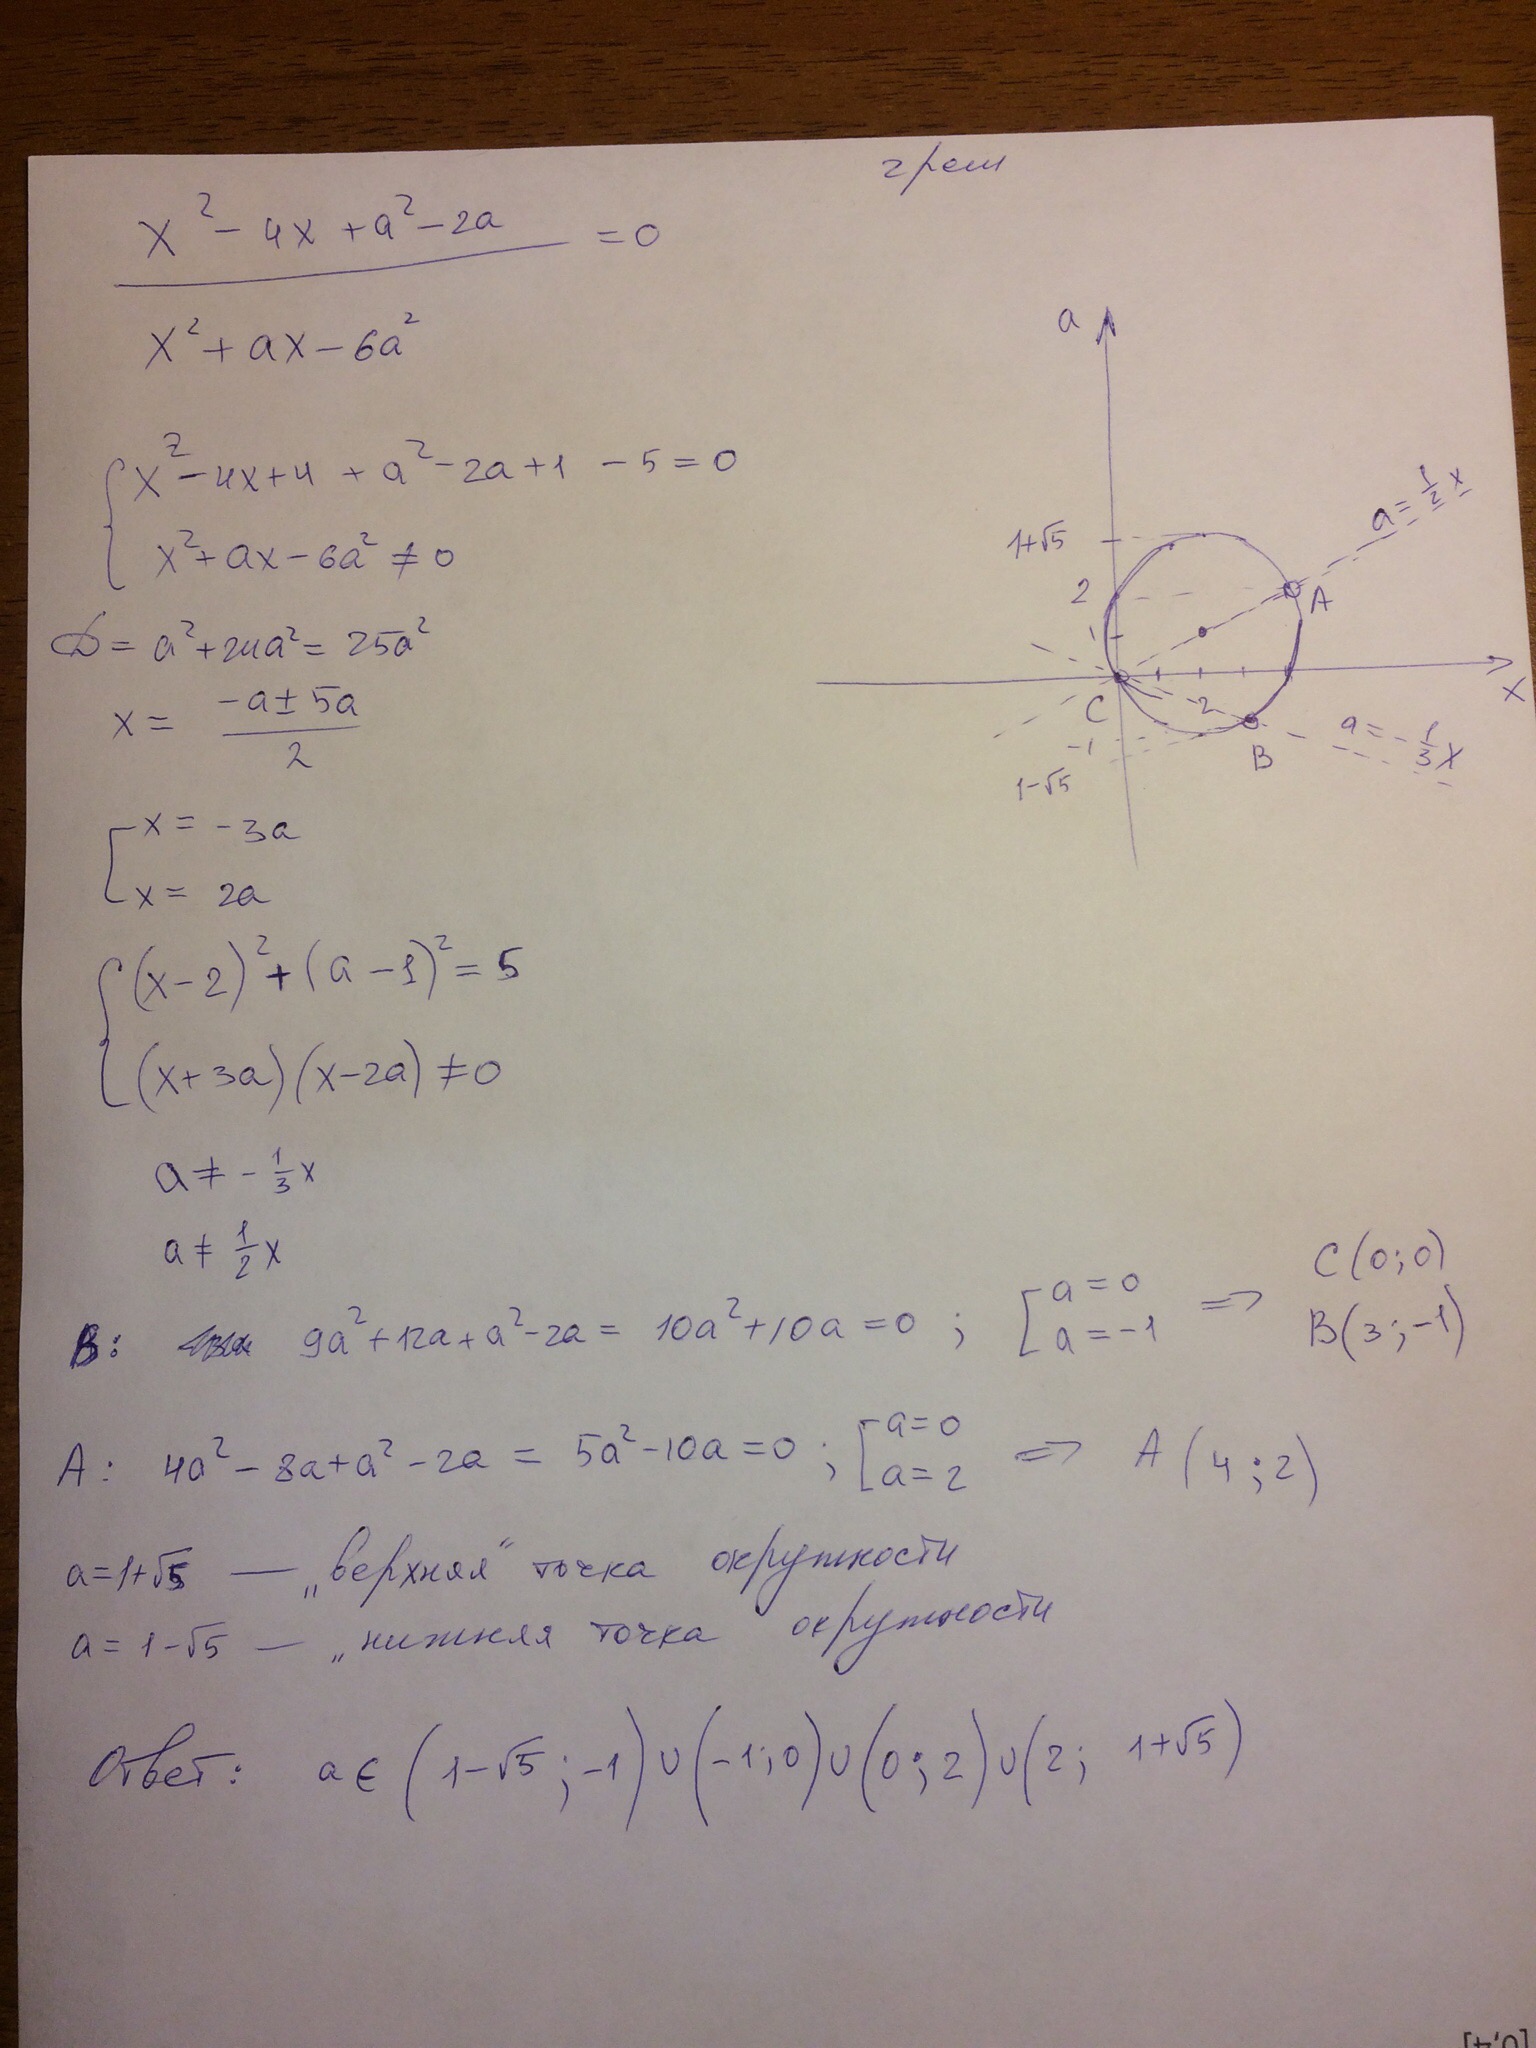 2 реш
x² - 4x + a² - 2a = 0
x² + ax - 6a²
x² - 4x + 4 + a² - 2a + 1 - 5 = 0
x² + ax - 6a² ≠ 0
D = a² + 24a² = 25a²
x = (-a ± 5a) / 2
x = -3a
x = 2a
(x - 2)² + (a - 1)² = 5
(x + 3a)(x - 2a) ≠ 0
a ≠ -1/3 x
a ≠ 1/2 x
a
a = 1/2 x
1+√5
2
A
1
1
x
C
2
-1
B
a = -1/3 x
1-√5
B: 9a² + 12a + a² - 2a = 10a² + 10a = 0 ; [a = 0 a = -1 => C(0; 0) B(3; -1)
A: 4a² - 8a + a² - 2a = 5a² - 10a = 0 ; [a = 0 a = 2 => A(4; 2)
a = 1+√5 — „верхняя" точка окружности
a = 1-√5 — „нижняя точка окружности
Ответ: a ∈ (1-√5; -1) ∪ (-1; 0) ∪ (0; 2) ∪ (2; 1+√5)